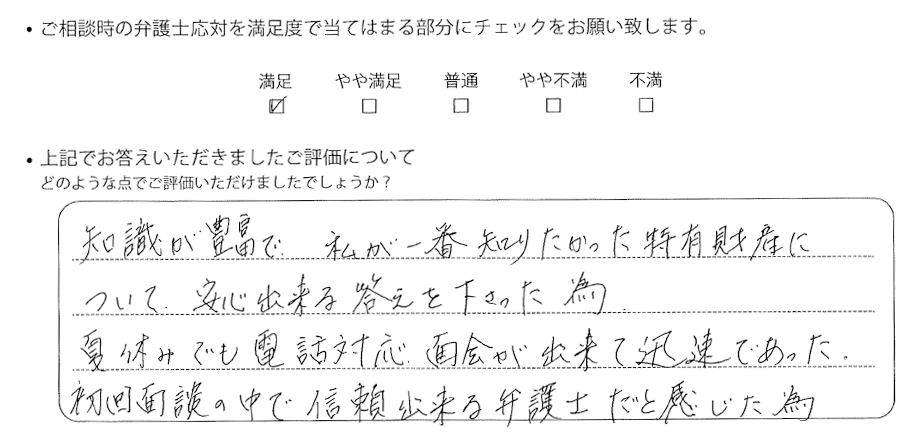 ・ご相談時の弁護士応対を満足度で当てはまる部分にチェックをお願い致します。
満足 やや満足 普通 やや不満 不満
☑ □ □ □ □
・上記でお答えいただきましたご評価について
どのような点でご評価いただけましたでしょうか？
知識が豊富で、私が一番知りたかった特有財産に
ついて、安心出来る答えを下さった為。
夏休みでも電話対応、面会が出来て迅速であった。
初回面談の中で信頼出来る弁護士だと感じた為